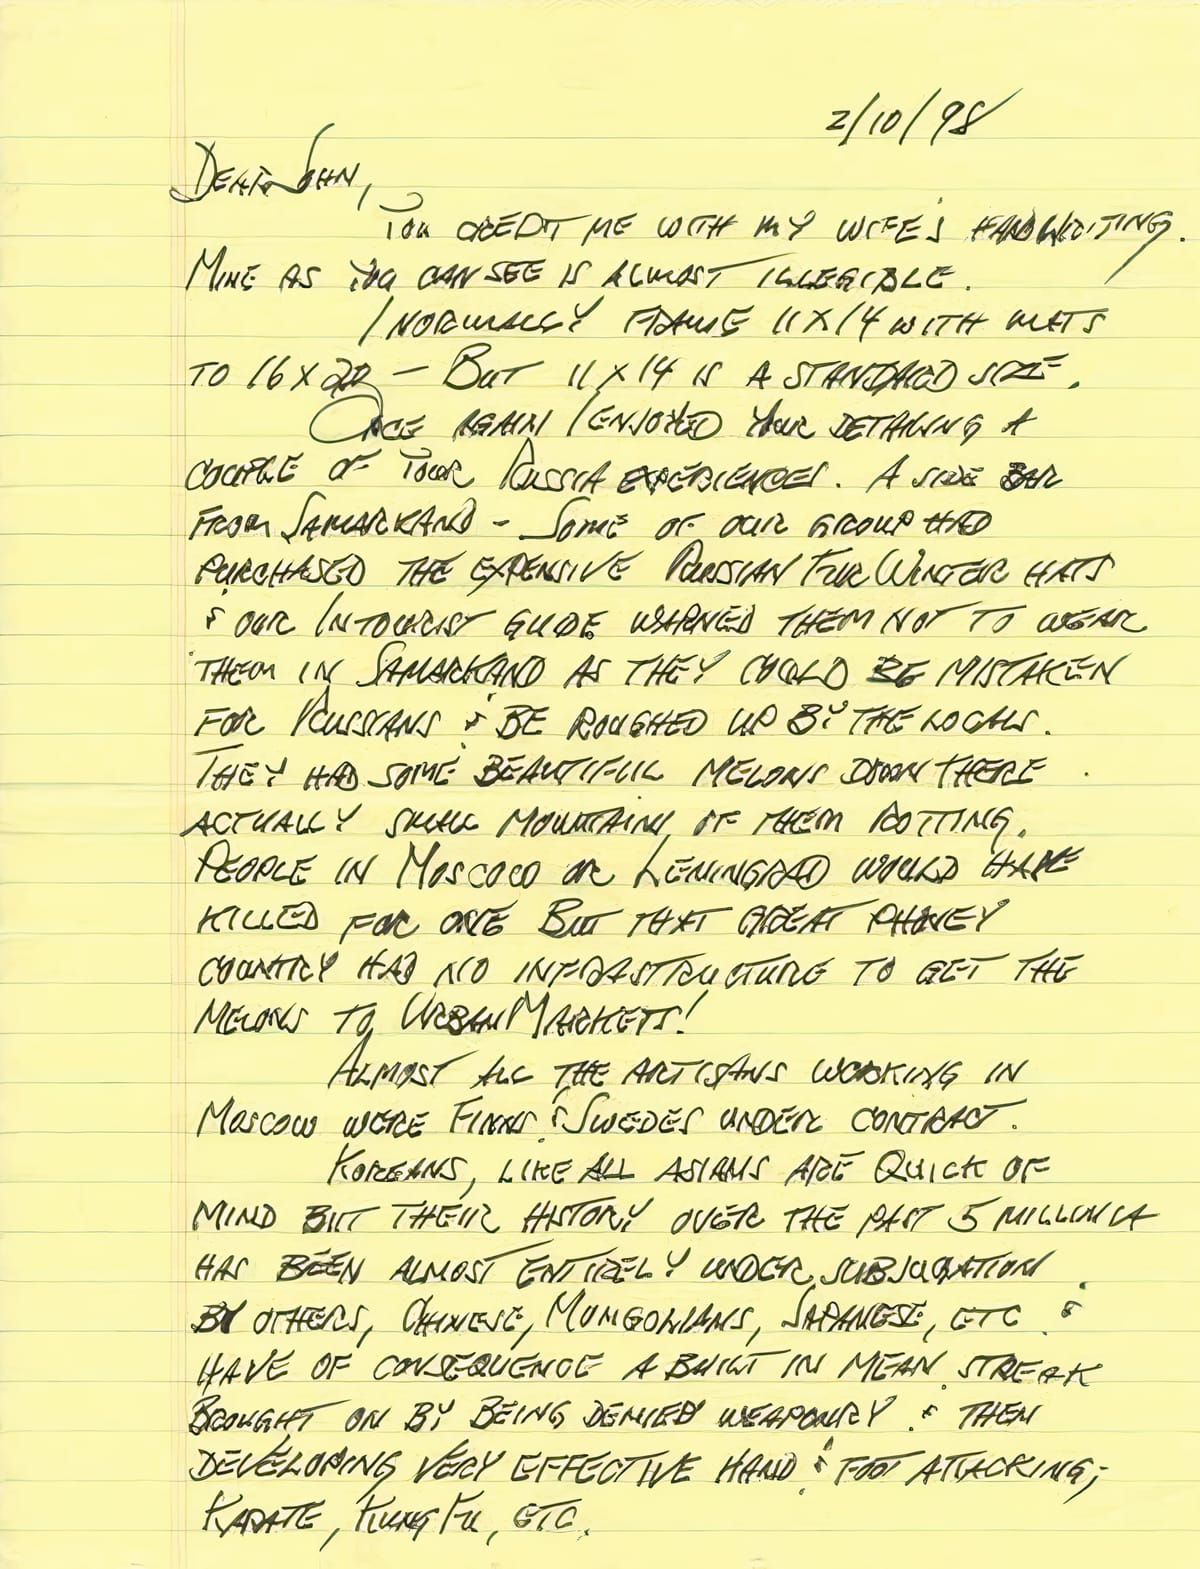 2/10/98
Dear John,
You credit me with my wife's handwriting.
Mine as you can see is almost illegible.
I normally frame 11 x 14 with mats
to 16 x 20 — But 11 x 14 is a standard size.
Once again I enjoyed your detailing a
couple of your Russia experiences. A side bar
from Samarkand - Some of our group had
purchased the expensive Russian Fur Winter hats
& our Intourist guide warned them not to wear
them in Samarkand as they could be mistaken
for Russians & be roughed up by the locals.
They had some beautiful melons down there.
actually small mountains of them rotting.
People in Moscow or Leningrad would have
killed for one But that great phoney
country had no infrastructure to get the
melons to Urban Markets!
Almost all the artisans working in
Moscow were Finns & Swedes under contract.
Koreans, like all Asians are quick of
mind but their history over the past 5 millunia
has been almost entirely under subjugation
by others, Chinese, Mongolians, Japanese, etc. &
have of consequence a built in mean streak
brought on by being denied weaponry & then
developing very effective hand & foot attacking;
Karate, Kung Fu, etc.